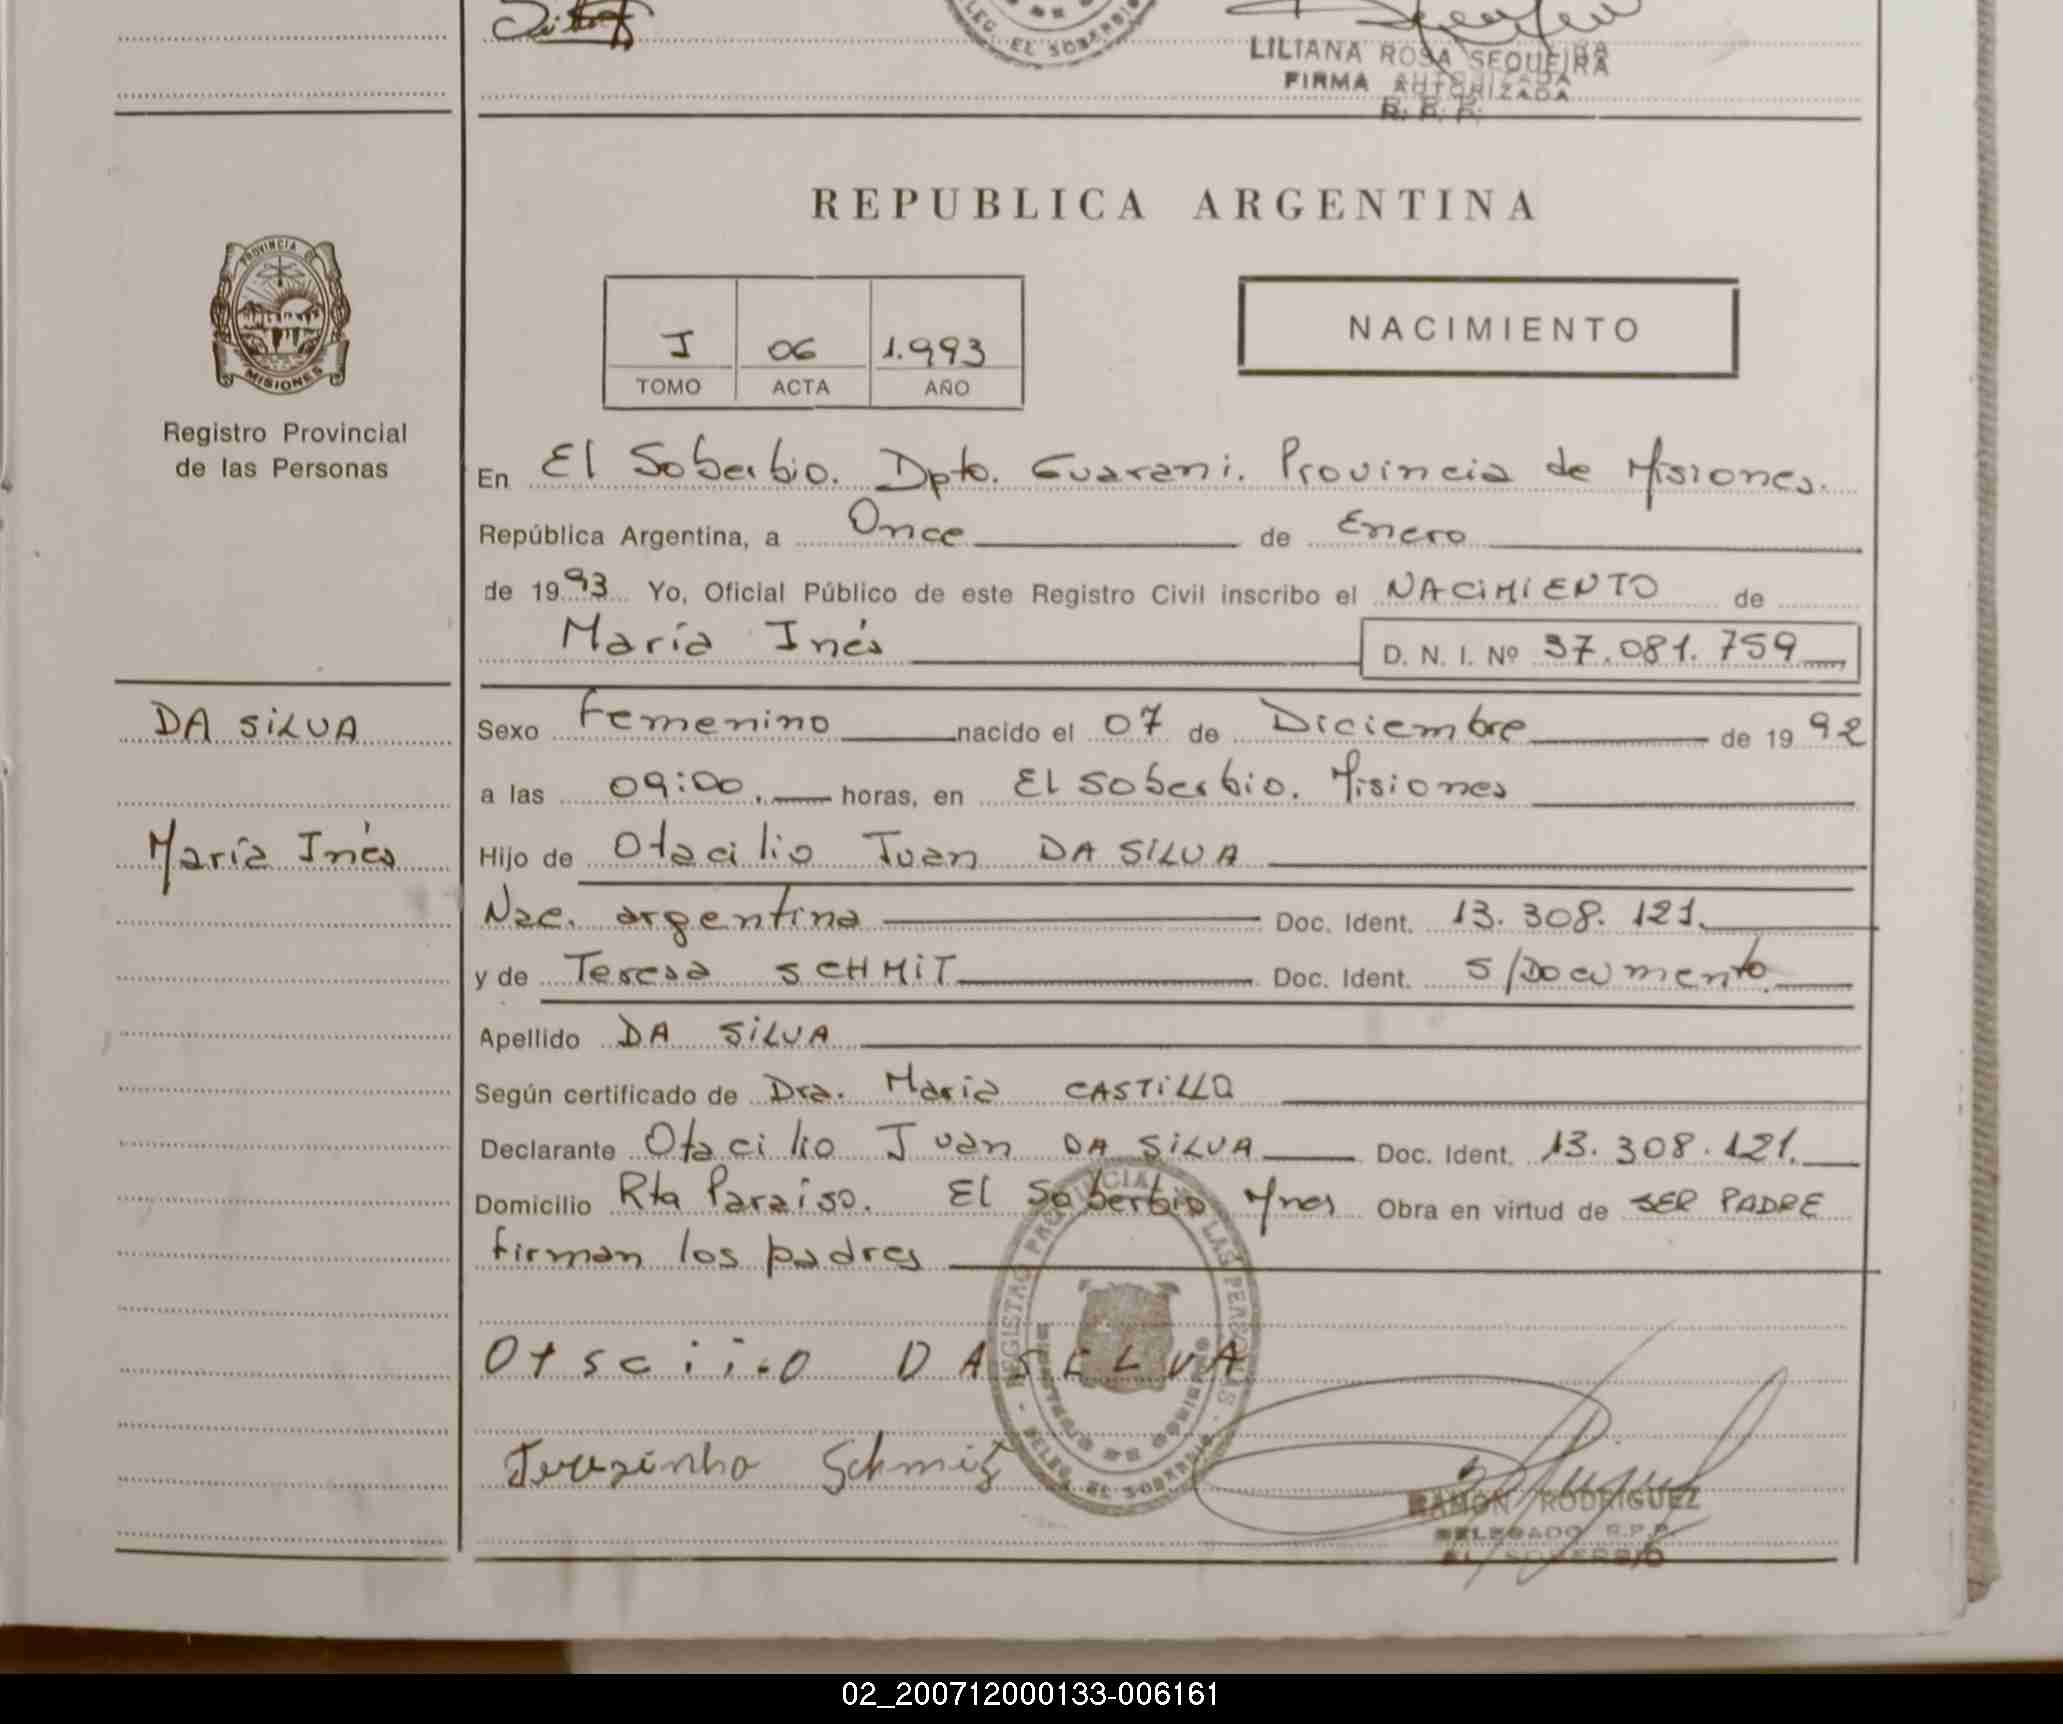 LEG. EL SOBERBIO
LILIANA ROSA SEQUEIRA
FIRMA AUTORIZADA
R. P. P.
REPUBLICA ARGENTINA
PROVINCIA DE
MISIONES
Registro Provincial
de las Personas
J 06 1.993
TOMO ACTA AÑO
NACIMIENTO
En El Soberbio. Dpto. Guarani. Provincia de Misiones.
República Argentina, a Once de Enero
de 1993 Yo, Oficial Público de este Registro Civil inscribo el NACIMIENTO de
María Inés D. N. I. Nº 37.081.759
DA SILVA
María Inés
Sexo Femenino nacido el 07 de Diciembre de 1992
a las 09:00. horas, en El Soberbio. Misiones
Hijo de Otacilio Juan DA SILVA
Nac. argentina Doc. Ident. 13.308.121.
y de Teresa SCHMIT Doc. Ident. S/Documento.
Apellido DA SILVA
Según certificado de Dra. Maria CASTILLO
Declarante Otacilio Juan DA SILVA Doc. Ident. 13.308.121.
Domicilio Rta Paraiso. El Soberbio Mnes Obra en virtud de SER PADRE
Firman los padres
REGISTRO PROVINCIAL DE LAS PERSONAS
DELEG. EL SOBERBIO
MINISTERIO DE GOBIERNO
Otsciiio DASILVA
Terezinha Schmit
RAMON RODRIGUEZ
DELEGADO R.P.P.
EL SOBERBIO
02_200712000133-006161